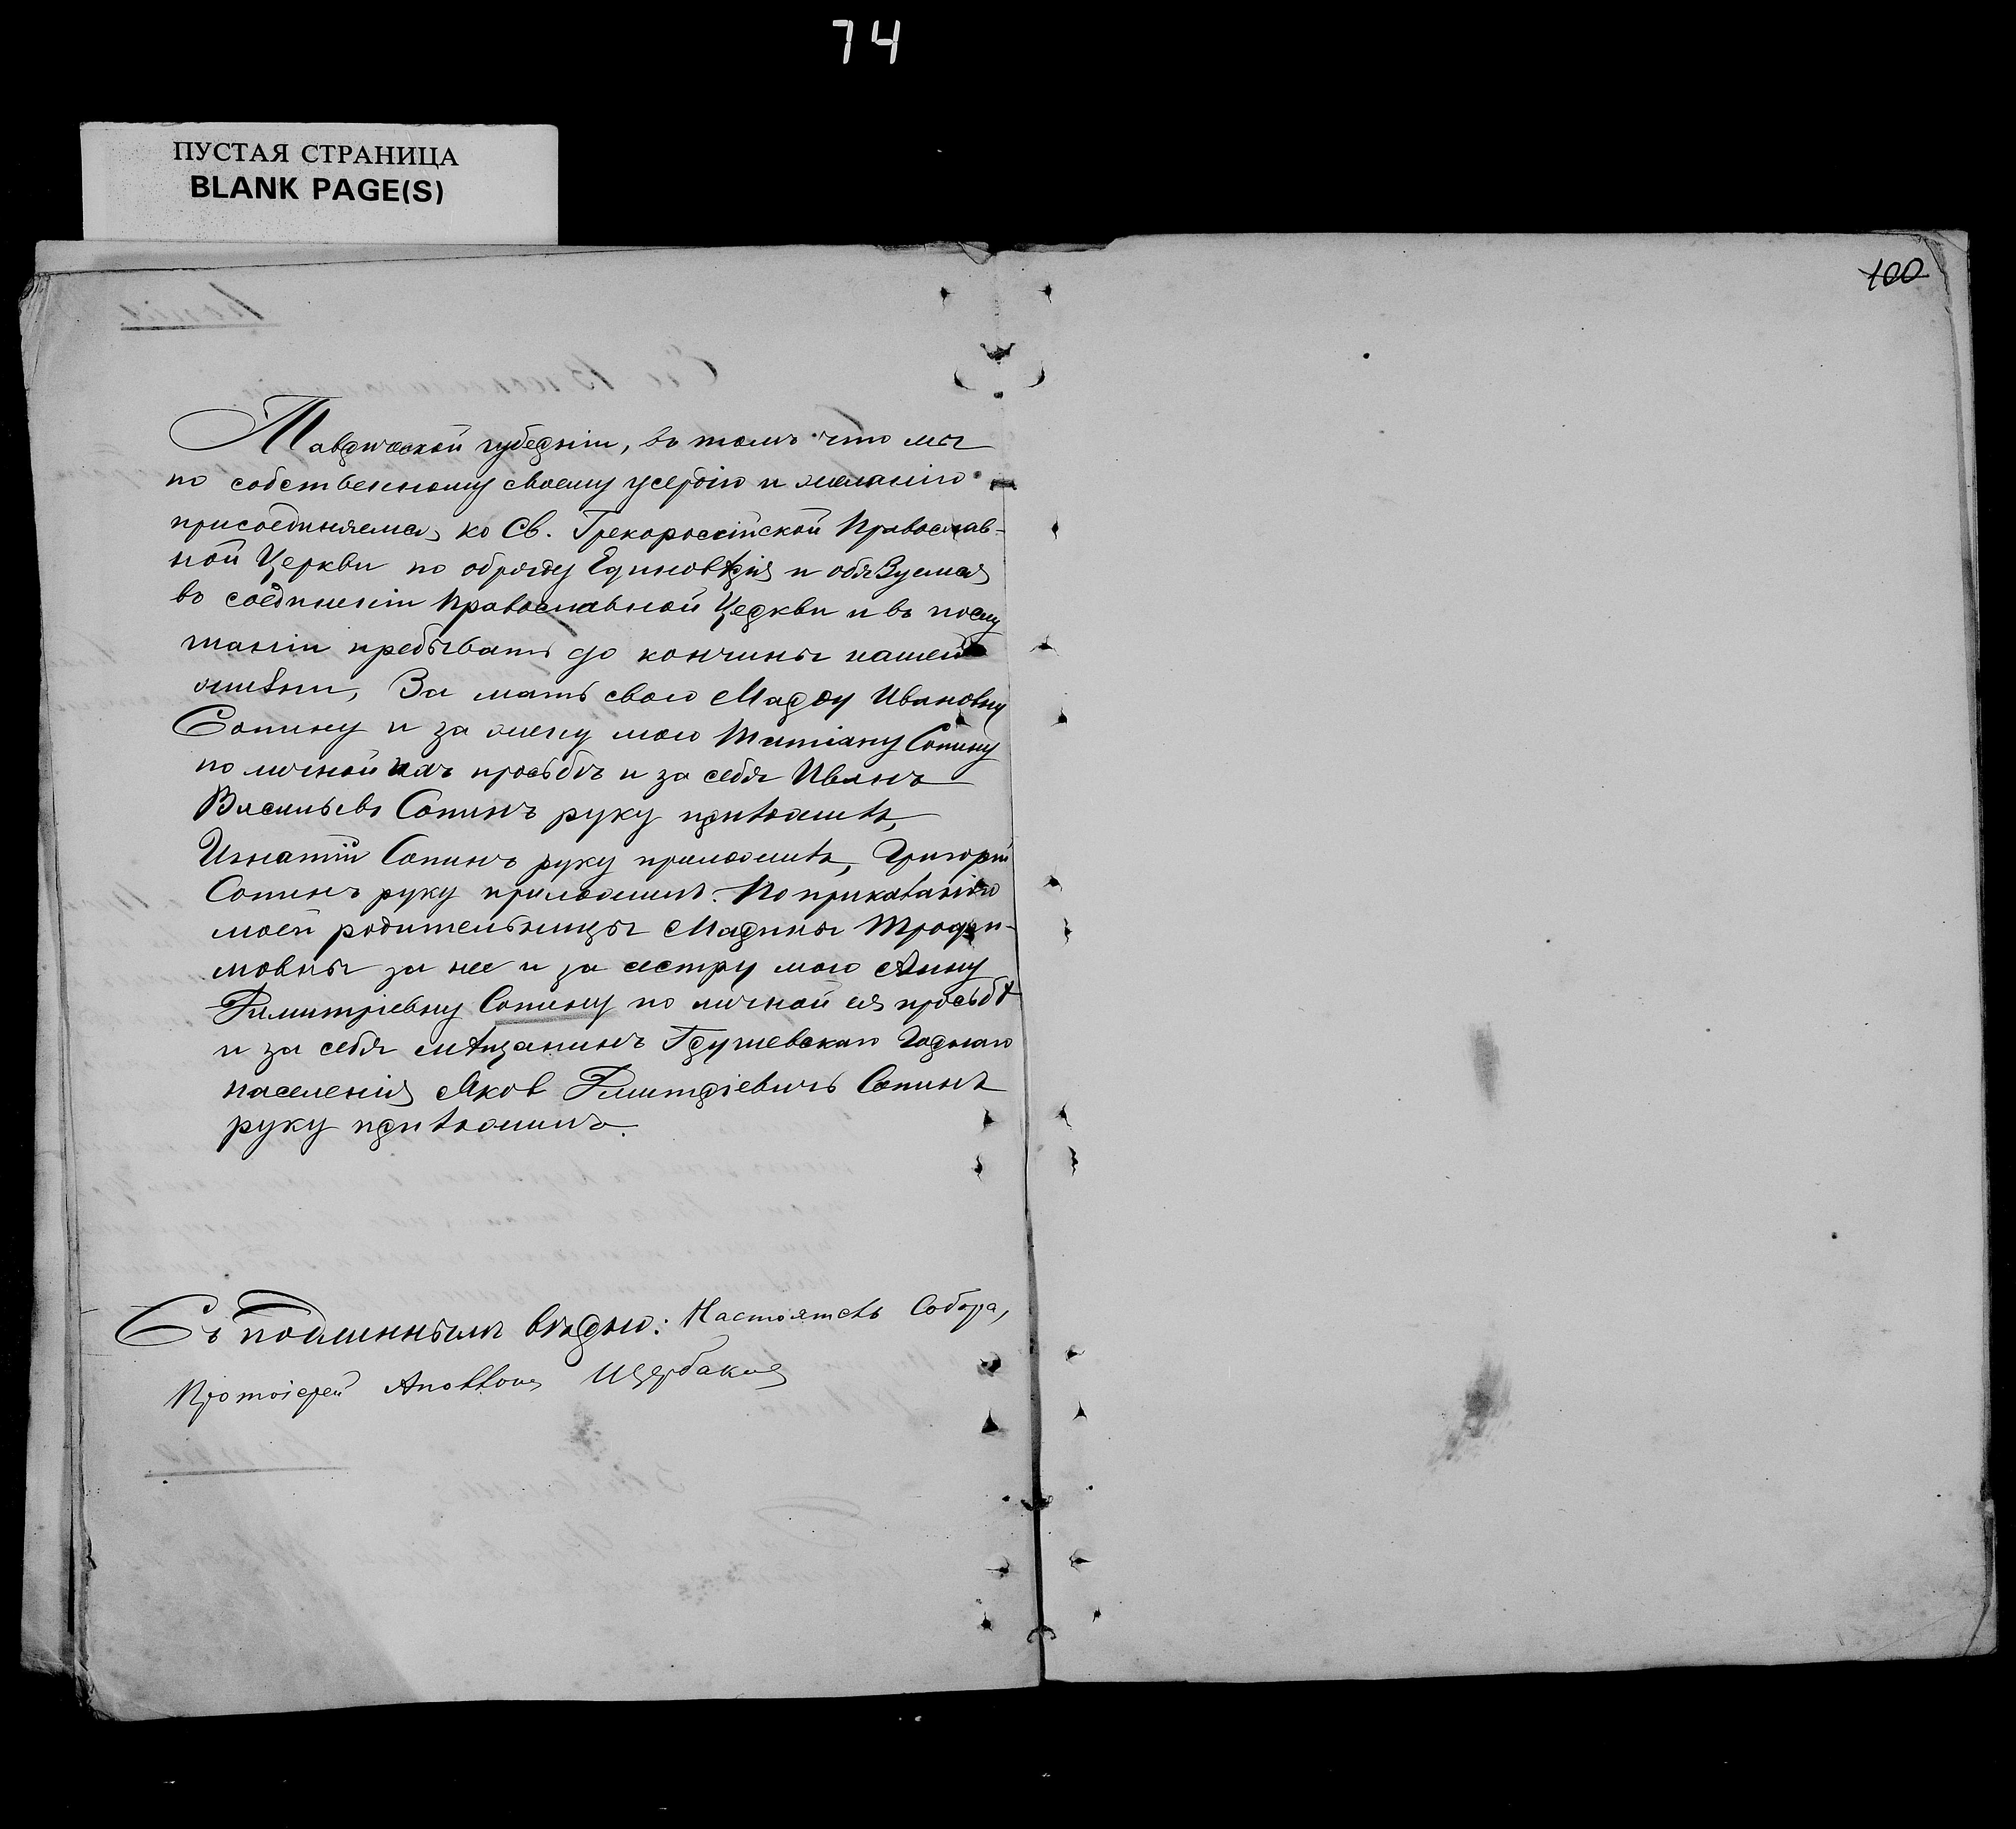 74
ПУСТАЯ СТРАНИЦА
BLANK PAGE(S)
100
Таврической губерніи, въ томъ что мы
по собственному своему усердію и желанію
присоединяемся ко Св. Грекороссійской Православ-
ной Церкви по обряду Единовѣрія и обязуемся
въ соединеніи Православной Церкви и въ послу
шаніи пребывать до кончины нашей
жизни, За мать свою Марфу Ивановну
Сопину и за жену мою Татіану Сопину
по личной ихъ просьбѣ и за себя Иванъ
Васильевъ Сопинъ руку приложилъ,
Игнатій Сопинъ руку приложилъ, Григорій
Сопинъ руку приложилъ. По приказанію
моей родительницы Марины Трофи-
мовны за нее и за сестру мою Анну
Димитріевну Сопину по личной ея просьбѣ
и за себя мѣщанинъ населенія Яковъ Димитріевичъ Сопинъ
руку приложилъ.
Съ подлиннымъ вѣрно: Настоятель Собора,
Протоіерей